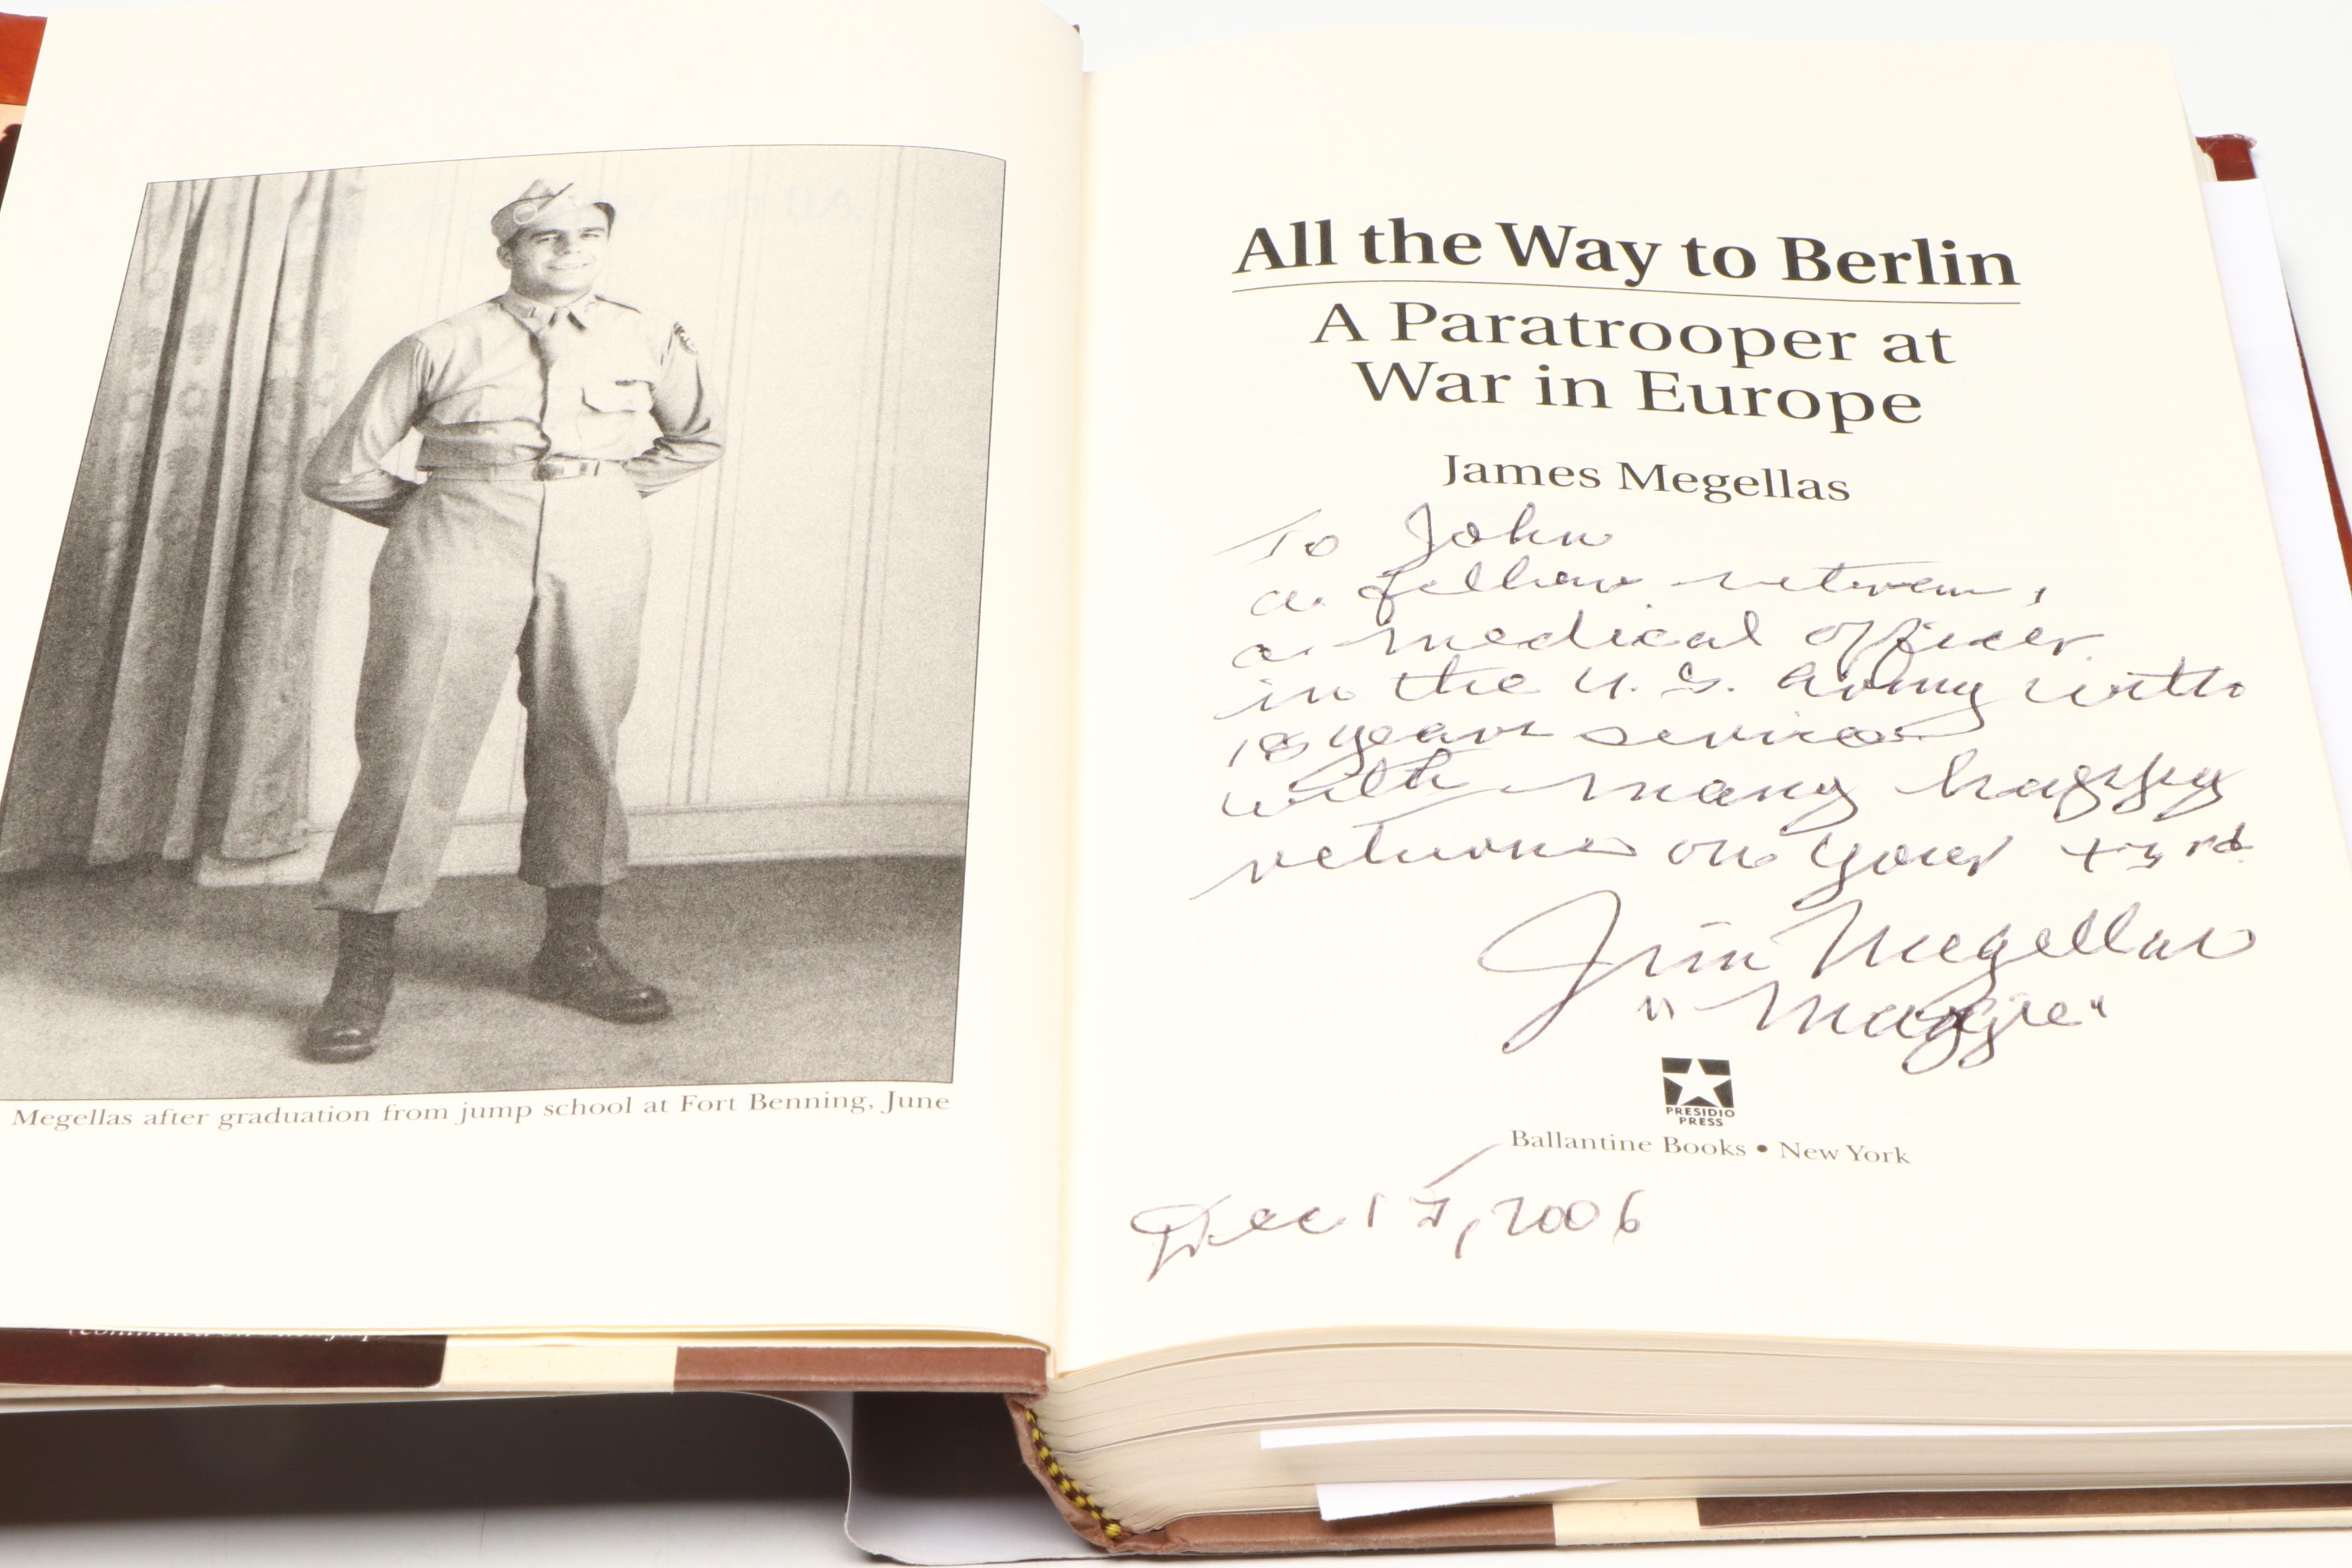 Megellas after graduation from jump school at Fort Benning, June
All the Way to Berlin
A Paratrooper at
War in Europe
James Megellas
To John
a fellow veteran,
a medical officer
in the U.S. Army with
18 years service
with many happy
returns on your rd
Jim Megellas
"Maggie"
PRESIDIO
PRESS
Ballantine Books • New York
Dec 2006